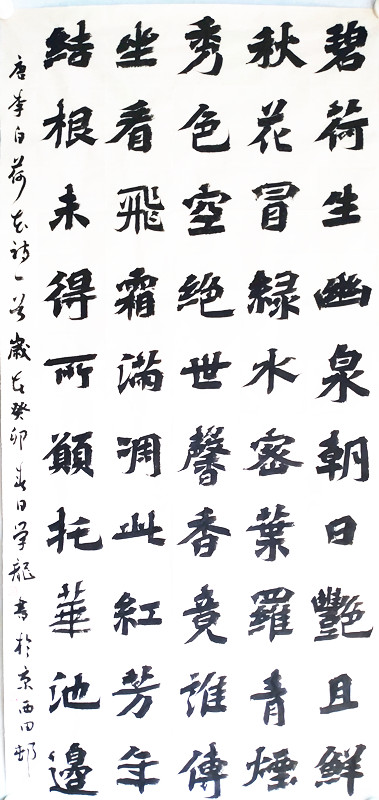 碧荷生幽泉朝日艷且鮮
秋花冒緑水密葉羅青煙
秀色空絶世馨香竟誰傳
坐看飛霜滿凋此紅芳年
結根未得所願托華池邊
唐李白荷花詩一首歲在癸卯春日學龍書於京西田邨